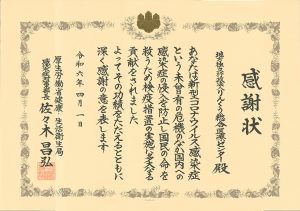 感謝状
地方独立行政法人りんくう総合医療センター殿
あなたは新型コロナウイルス感染症
という未曾有の危機のなか国内への
感染症の侵入を防止し国民の命を
救うため検疫措置の実施に多大なる
貢献をされました
よってその功績をたたえるとともに
深く感謝の意を表します
令和六年四月一日
厚生労働省健康・生活衛生局
感染症対策部長 佐々木昌弘